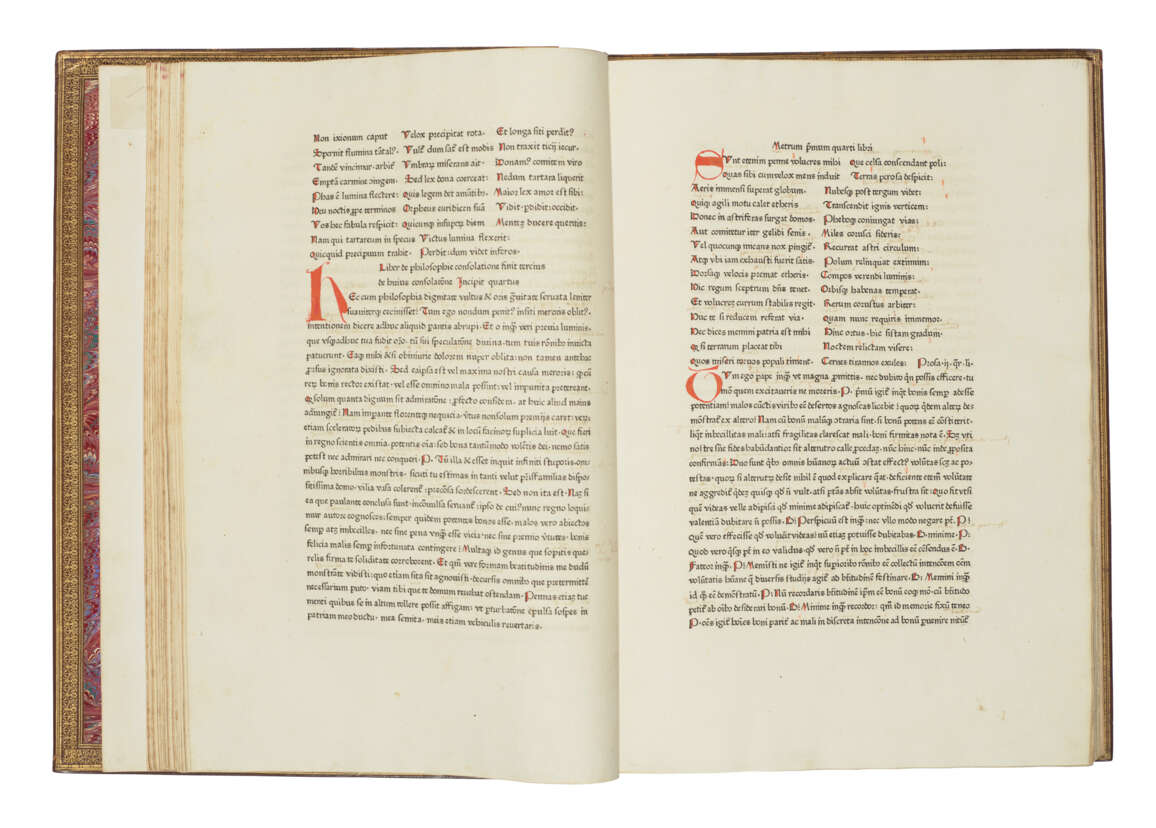 Non ixionum caput Velox precipitat rota· Et longa siti perditꝰ
Spernit flumina tātalꝰ· Vulꝰ dum sat̄ est modis Non traxit ticij iecur·
Tandē vincimur·arbitͬ Vmbraꝝ miserans ait· Donamꝰ comitem viro
Emptā carmine ꝯiugem· Sed lex dona coerceat: Nedum tartara liquerit
Phas ē lumina flectere: Quis legem det amātibꝰ· Maior lex amor est sibi:
Heu noctis ꝓpe terminos Orpheus euridicen suā Vidit·ꝑdidit:occidit·
Vos hec fabula respicit: Quicunqꝫ insuꝑeꝝ diem Mentē ducere queritis:
Nam qui tartareum in specus Victus lumina flexerit:
Quicquid precipuum trahit· Perdit:dum videt inferos·
Liber de philosophie consolatione finit tercius
de huius consolatōne Incipit quartus
HEc cum philosophia dignitate vultus & oris ḡuitate seruata leniter
suauiterqꝫ cecinisset: Tum ego nondum penitꝰ insiti meroris oblitꝰ·
intentionem dicere adhuc aliquid parātis abrupi· Et o inqͣꝫ veri preuia luminis·
que vsqꝫadhuc tua fudit oīo·tū sui speculatōne diuina·tum tuis rōnibꝰ inuicta
patuerunt· Eaqꝫ mihi &si obiniurie dolorem nuper oblita:non tamen antehac
ꝓrsus ignorata dixisti· Sed eaipsa est vel maxima nostri causa meroris: qꝫ cū
reꝝ bonus rector existat·vel esse omnino mala possint·vel impunita pretereant·
Qsolum quanta dignum sit admiratōne: ꝓfecto considera· at huic aliud maius
adiungitͬ: Nam imꝑante florenteqꝫ nequicia·v̄tus nonsolum premijs caret·veꝝ
etiam sceleratoꝝ pedibus subiecta calcatͬ & in locū facinoꝝ suplicia luit· Que fieri
in regno scientis omnia·potentis oīa:sed bona tantūmodo volētis dei·nemo satis
potest nec admirari nec conqueri· P· Tū illa & esset inquit infiniti stuporis·om/
nibusqꝫ horribilius monstris·sicuti tu estimas in tanti velut prīsfamilias dispo/
sitissima domo·vilia vasa colerentͬ·p̄cōsa sordescerent· Sed non ita est· Naꝫ si
ea que paulante conclusa sunt·incōuulsa seruantͬ:ipso de cuiꝰ nunc regno loqui
mur autore cognosces:semper quidem potentes bonos esse·malos vero abiectos
semꝑ atqꝫ imbecilles·nec sine pena vnqͣꝫ esse vicia·nec sine premio v̄tutes·bonis
felicia malis semꝑ infortunata contingere: Multaqꝫ id genus que sopitis que/
relis firma te soliditate corroborent· Et qm̄ vere formam beatitudinis me dudū
monstrāte vidisti:quo etiam sita sit agnouisti·decursis omnibꝰ que pretermittē
necessarium puto·viam tibi que te domum reuehat ostendam· Pennas etiaꝫ tue
menti quibus se in altum tollere possit affigam:vt ꝑturbatōne ꝯpulsa sospes in
patriam meo ductu·mea semita·meis etiam vehiculis reuertaris·
Metrum p̄mum quarti libri
SVnt etenim penne volucres mihi Que celsa conscendant poli:
Quas sibi cumvelox mens induit Terras perosa despicit:
Aeris immensi superat globum· Nubesqꝫ post tergum videt:
Quiqꝫ agili motu calet etheris Transcendit ignis verticem:
Donec in astriferas surgat domos· Pheboqꝫ coniungat vias:
Aut comitetur iter gelidi senis· Miles corusci sideris:
Vel quocunqꝫ micans nox pingitͬ· Recurrat astri circulum:
Atqꝫ vbi iam exhausti fuerit satis· Polum relinquat extimum:
Dorsaqꝫ velocis premat etheris· Compos verendi luminis:
Hic regum sceptrum dn̄s tenet· Orbisqꝫ habenas temperat·
Et volucreꝫ currum stabilis regit· Rerum coruscus arbiter:
Huc te si reducem referat via· Quam nunc requiris immemor·
Hec dices memini patria est mihi Hinc ortus·hic sistam gradum·
Qꝫ si terrarum placeat tibi Noctem relictam visere:
Quos miseri toruos populi timent· Cernes tirannos exules: Prosa·ij·qr̄·li·
TVm ego pape inqͣꝫ vt magna ꝓmittis·nec dubito qn̄ possis efficere·tu
mō quem excitaueris ne moreris· P· p̄mū igitͬ inqͭ bonis semꝑ adesse
potentiam:malos cūctꝭ viribꝰ eē desertos agnoscas licebit: quoꝝ qͥdem alteꝝ de/
mōstratͬ ex altero· Nam cū bonū malūqꝫ ꝯtraria sint·si bonū potens eē cōstiterit·
liqꝫt inbecillitas mali:atsi fragilitas clarescat mali·boni firmitas nota ē· Sꝫ vti
nostre sn̄ie fides habūdantior sit alterutro calle ꝓcedaꝫ·nūc hinc·nūc inde ꝓposita
confirmās: Duo sunt qͥbꝰ omnis hūanoꝝ actuū ꝯstat effectꝰ volūtas scꝫ ac po/
testas·quoꝝ si alterutꝝ desit nihil ē quod explicare qͣat·deficiente etem̄ volūtate
ne aggredit̄ qͥdeꝫ quisqꝫ qꝺ n̄ vult·atsi ptās absit volūtas frustra sit:Quo fit vtsi
quē videas velle adipisci qꝺ minime adipiscatͬ·huic optinēdi qꝺ voluerit defuisse
valentiā dubitare n̄ possis· B: Perspicuū est inqͣꝫ:nec vllo modo negare pt̄· P:
quē vero effecisse qꝺ voluit videas:nū etiaꝫ potuisse dubitabis· B·minime·P:
Quod vero qͥsqꝫ pt̄ in eo validus·qꝺ vero n̄ pt̄ in hoc imbecillis eē cēsendus ē·B·
Fateor inqͣꝫ· P: Memistī ne igitͬ inqͭ supioribꝰ rōnibꝰ eē collectū intencōem oēm
volūtatis hūane qͥ diuersis studijs agitͬ ad btītudinē festinare· B: Memini inqͣꝫ
id qꝫ eē demōstratū· P: Nū recordaris btītudinē ip̄m eē bonū eoqꝫ mō·cū btītudo
petitͬ ab oībꝰ desiderari bonū· B: Minime inqͣꝫ recordor: qm̄ id memorie fixū teneo
P·oēs igitͬ hoīes boni paritͬ ac mali in discreta intencōne ad bonū ꝑuenire nitūtͬ